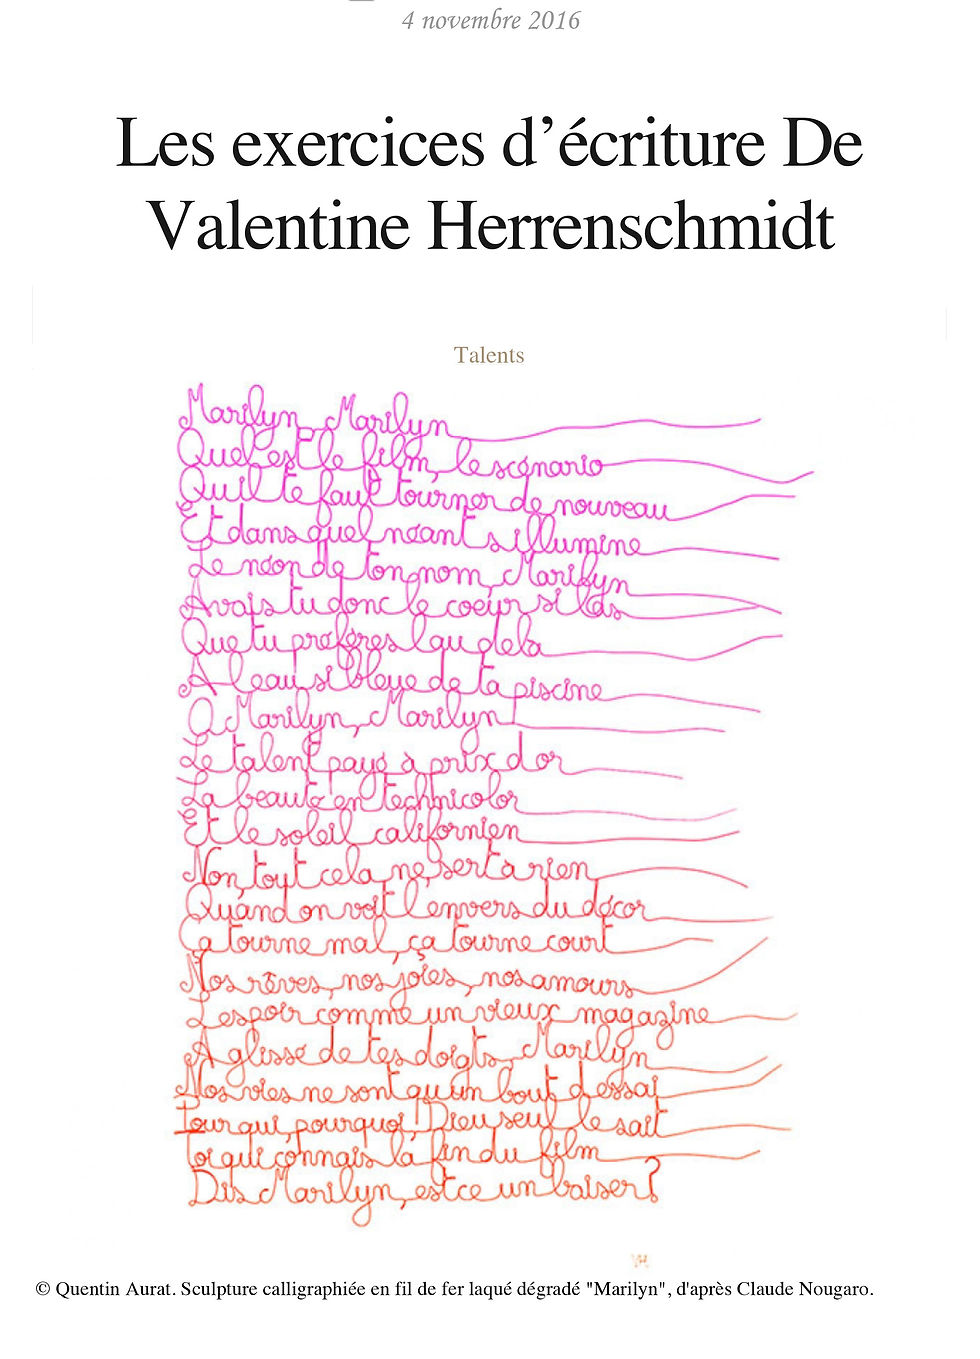 4 novembre 2016
Les exercices d’écriture De
Valentine Herrenschmidt
Talents
Marilyn, Marilyn
Quel est le film, le scénario
Quil te faut tourner de nouveau
Et dans quel néant sillumine
Le néon de ton nom, Marilyn
Avais tu donc le coeur si las
Que tu préfères lau dela
A leau si bleue de ta piscine
O Marilyn, Marilyn
Le talent payé à prix dor
La beauté en technicolor
Et le soleil californien
Non, tout cela ne sert à rien
Quand on voit lenvers du décor
Ca tourne mal, ça tourne court
Nos rêves, nos joies, nos amours
Lespoir comme un vieux magazine
A glissé de tes doigts, Marilyn
Nos vies ne sont quun bout dessai
Pour qui, pourquoi ! Dieu seul le sait
Toi qui connais la fin du film
Dis Marilyn, estce un baiser ?
VH
© Quentin Aurat. Sculpture calligraphiée en fil de fer laqué dégradé "Marilyn", d'après Claude Nougaro.